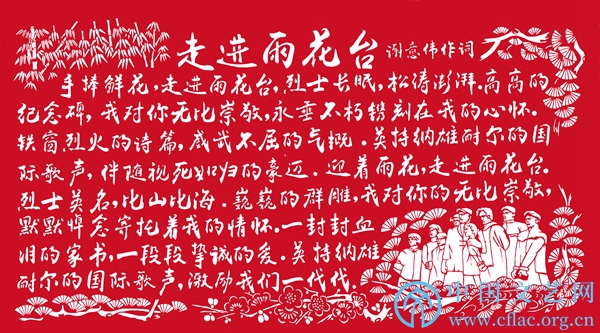 走进雨花台 谢意伟作词
手捧鲜花，走进雨花台，烈士长眠，松涛澎湃。高高的
纪念碑，我对你无比崇敬，永垂不朽镌刻在我的心怀。
铁窗烈火的诗篇，威武不屈的气概。英特纳雄耐尔的国
际歌声，伴随视死如归的豪迈。迎着雨花，走进雨花台。
烈士英名，比山比海。巍巍的群雕，我对你的无比崇敬，
默默悼念寄托着我的情怀。一封封血
泪的家书，一段段挚诚的爱。英特纳雄
耐尔的国际歌声，激励我们一代代。
中国文艺网
www.cflac.org.cn